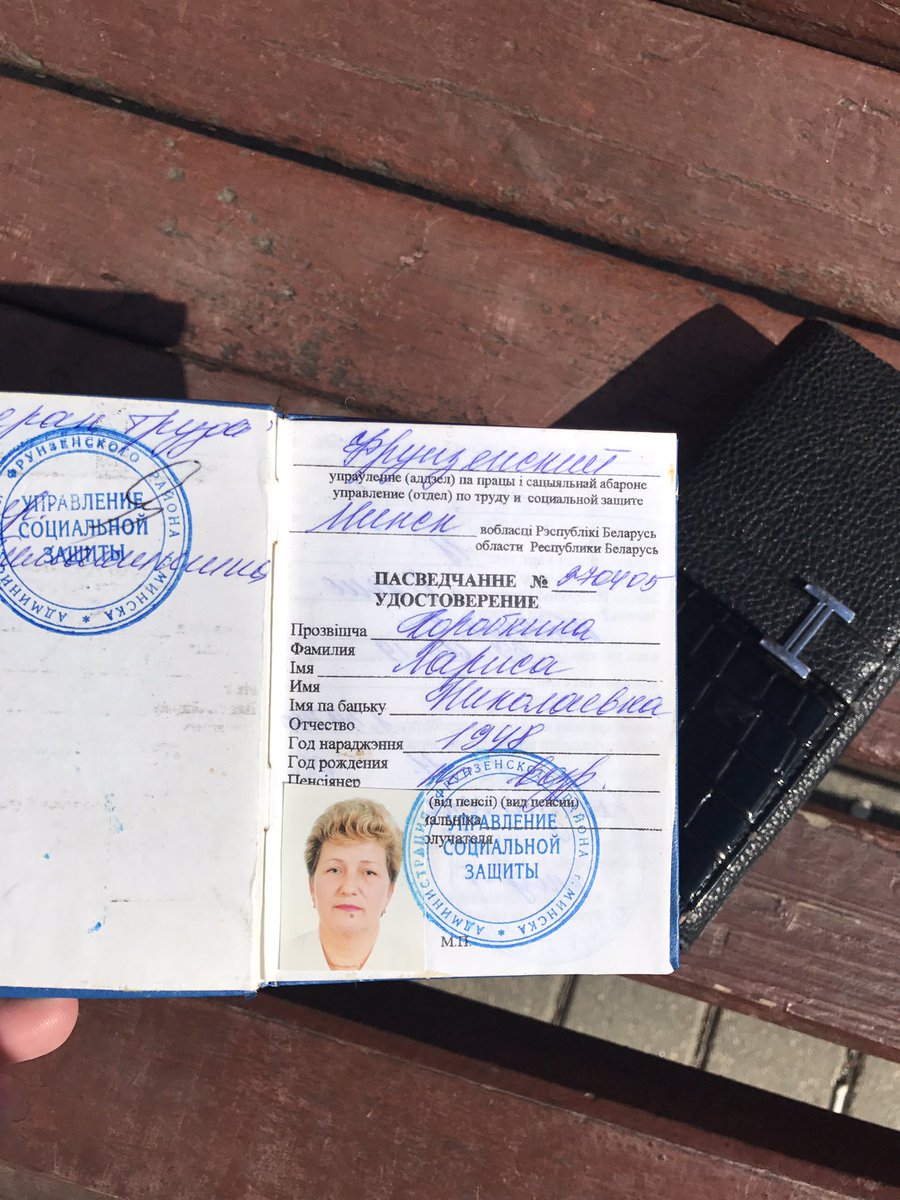 труда
УПРАВЛЕНИЕ
СОЦИАЛЬНОЙ
ЗАЩИТЫ
ФРУНЗЕНСКОГО РАЙОНА
Г. МИНСКА * АДМИНИ
Фрунзенский
упраўленне (аддзел) па працы і сацыяльнай абароне
управление (отдел) по труду и социальной защите
Минск вобласці Рэспублікі Беларусь
области Республики Беларусь
ПАСВЕДЧАННЕ № 270405
УДОСТОВЕРЕНИЕ
Прозвішча Коробкина
Фамилия
Імя Лариса
Имя
Імя па бацьку Николаевна
Отчество
Год нараджэння 1948
Год рождения
Пенсіянер
(від пенсіі) (вид пенсии)
альніка
олучателя
УПРАВЛЕНИЕ
СОЦИАЛЬНОЙ
ЗАЩИТЫ
АДМИНИСТРАЦИЯ ФРУНЗЕНСКОГО РАЙОНА Г. МИНСКА *
М.П.